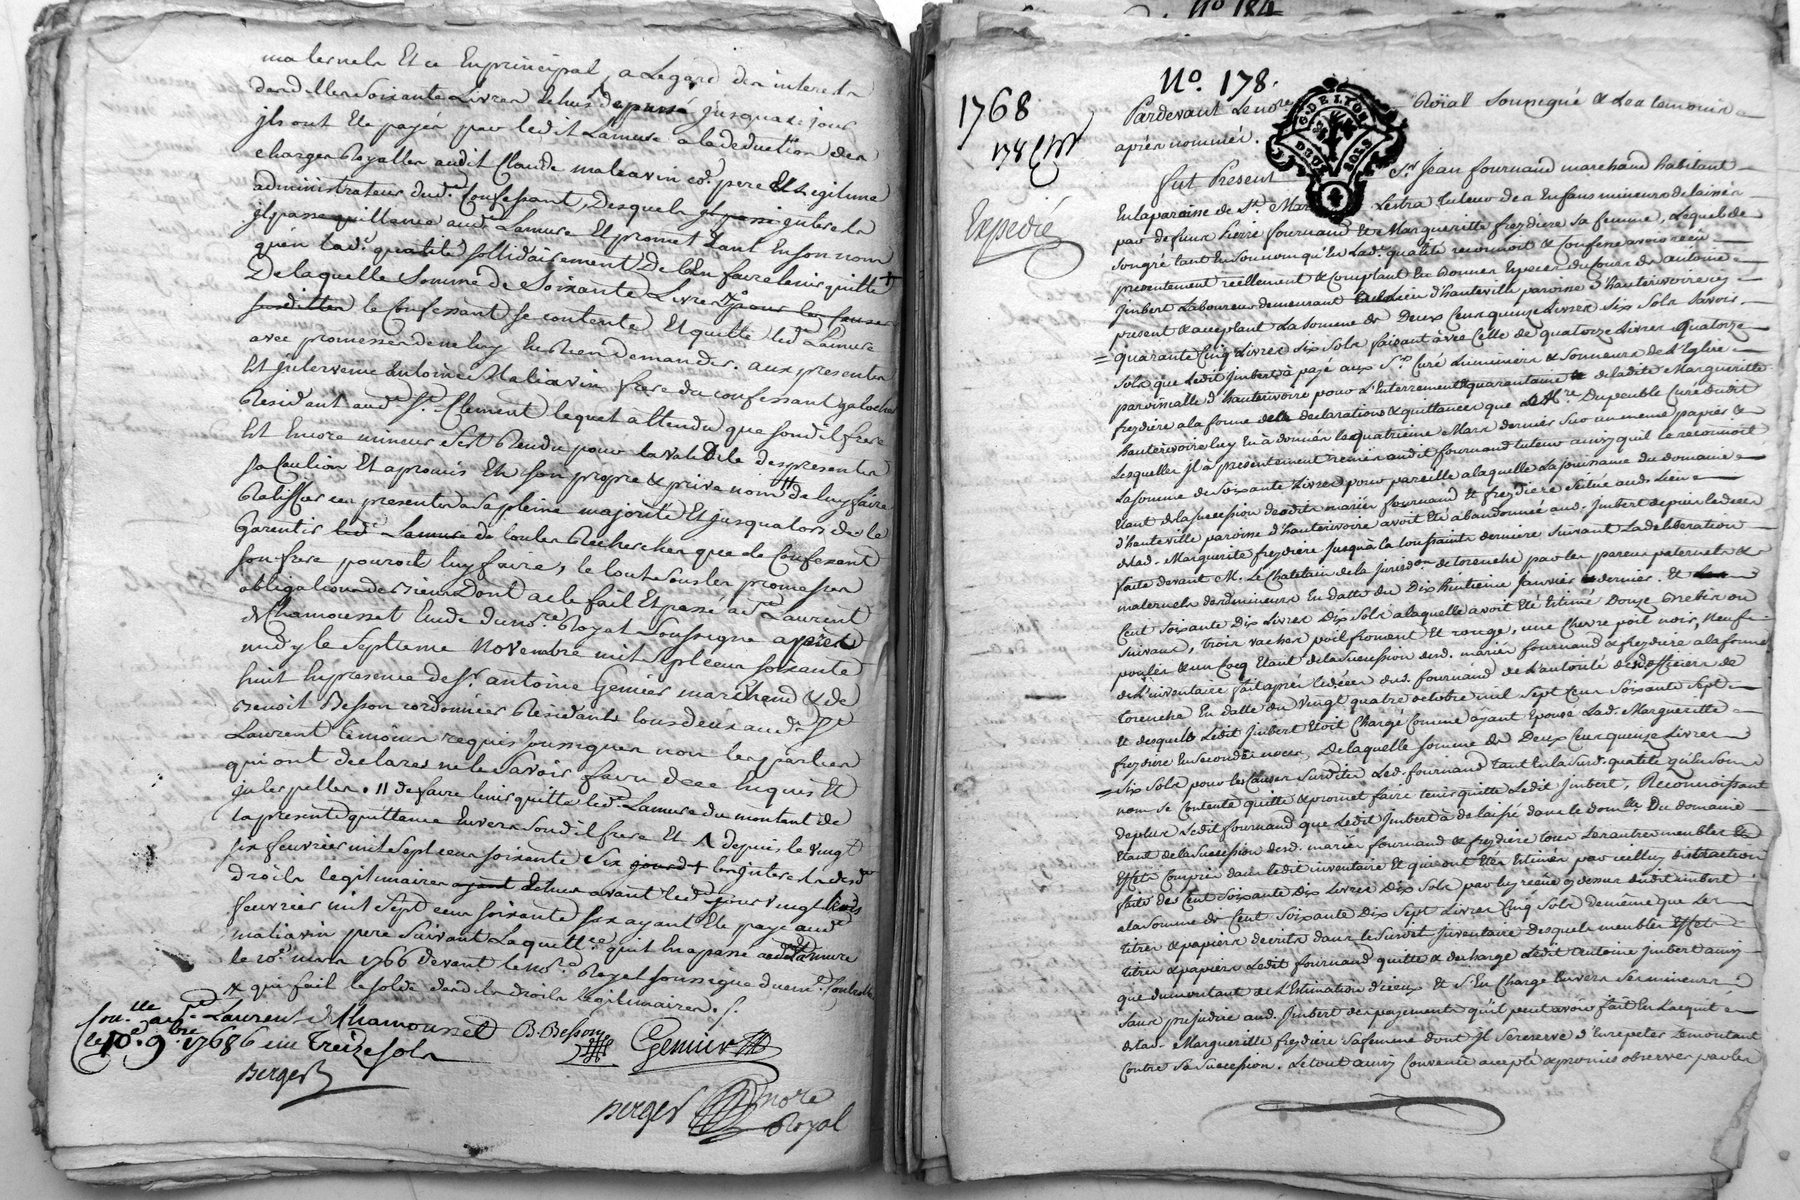 maternels Et ce En principal, a Legard des interets
desdittes soixante Livres dehus depuis jusqua ce jour
jls ont Ete payés par ledit Lamure a la deduction des
charges Royalles audit Claude maliavin co. pere Et Legitime
administrateur dud. Confessant, desquels jnterets
jl passe quittance aud. Lamure Et promet tant En son nom
qu'en lad. qualité sollidairement de l'En faire tenir quitte +
De laquelle Somme de Soixante Livres pour les Causes
susdittes le Confessant se contente Et quitte led. Lamure
avec promesse de ne luy En rien demander. aux presentes
Est jntervenu Antoine Maliavin frere du confessant
Residant aud. St. Clement lequel attendu que sond. frere
Est Encore mineur s'est Rendu pour la validité des presentes
sa Caution Et a promis En son propre & privé nom de luy faire
Ratiffier ces presentes a sa pleine majorité Et jusqu'alors de le
Garentir led. Lamure de toutes Recherches que le Confessant
son frere pourroit luy faire, le tout sous les promesses
obligations de biens Dont acte fait Et passé a St. Laurent
de Chamousset Etude du no.re Royal Soussigné apres
midy le septieme Novembre mil sept cens soixante
huit En presence de Sr. antoine Gemier marchand & de
Benoit Besson cordonnier Residants tous deux aud. St.
Laurent temoins requis soussignes non les parties
qui ont declarés ne le savoir faire de ce Enquises Et
jnterpellees. // de faire tenir quitte led. Lamure du montant de
la presente quittance Envers sond. frere Et Λ depuis le vingt
six fevrier mil sept cens soixante six + les jnterets desd.
droits legitimaires avant led. jour vingt
fevrier mil sept cens soixante six ayant Ete payé aud.
maliavin pere suivant la quitt.ce qu'il En a passé aud. Lamure
le 10. mars 1766 devant le no.re Royal soussigné
& qui fait le solde desdits droits legitimaires. /.
Con.lle a St. Laurent de Chamousset
le 10. 9.bre 1768 6 eu Treize sols
B. Besson
Gemier
Berger
Berger no.re Royal
No. 184
No. 178.
1768
178
Expedié
GDELION
DEUX SOLS
Pardevant Le no.re Roïal Soussigné & Les temoins
après nommés.
Fut Present Sr. Jean fournand marchand habitant
En la paroisse de St. Lestra tuteur des Enfans mineurs delaissés
par deffunt Pierre fournand Et Margueritte freydiere sa femme, Lequel de
son gré tant En son nom qu'En Lad. qualité reconnoit & Confesse avoir reçu
presentement reellement & Comptant En bonnes Especes du Cours des antoine
jmbert Laboureur demeurant au Lieu d'hauteville paroisse d'hauterivoire icy
present & acceptant La somme de Deux Cens quinze Livres Six Sols Savoir
= quarante Cinq Livres Six Sols faisant avec Celle de quatorze Livres quatorze
sols que Ledit jmbert à payé aux Srs. Curé Luminiers & Sonneurs de L'Eglise
parroissialle d'hauterivoire pour L'Enterrement & quarantaine de ladite Margueritte
freydiere a la forme des declarations & quittances que Me. Dupeuble Curé dudit
hauterivoire luy En à donnés le quatrieme Mars dernier sur un meme papier &
Lesquelles jl à presentement remis audit fournand tuteur ainsy quil le reconnoit
La somme de Soixante Livres pour pareille a laquelle La jouissance du domaine
Etant de la succession desdits mariés fournand & freydiere situé aud. Lieu
d'hauteville paroisse d'hauterivoire avoit Eté abandonnée aud. jmbert depuis le deces
de lad. Marguerite freydiere jusqu'à la toussaints derniere suivant La deliberation
faite devant M. Le Chatelain de la jurisd.on de torenche par les parens paternels &
maternels desd. mineurs En datte du Dix huitieme janvier dernier. Et
Cent Soixante Dix Livres Dix Sols a laquelle avoit Eté Estimé Douze Brebis ou
suivans, trois vaches poil froment Et rouge, une Chevre poil noir, Neuf
poules & un Cocq Etant de la Succession desd. mariés fournand & freydiere a la forme
de L'inventaire fait après le deces dud. fournand de L'autorité des officiers de
Torenche En datte du Vingt quatre octobre mil Sept Cens Soixante Sept
Et desquels Ledit jmbert Etoit Chargé Comme ayant Epousé Lad. Margueritte
freydiere En secondes noces, De laquelle somme de Deux Cens quinze Livres
= Six Sols pour les Causes Surdites Led. fournand tant En la Surd. qualité qu'En son
nom se Contente quitte & promet faire tenir quitte Ledit jmbert, Reconnoissant
de plus Ledit fournand que Ledit jmbert à delaissé dans le dom.lle Du domaine
Etant de la Succession desd. mariés fournand & freydiere tous Les autres meubles &
Effets Compris dans ledit inventaire Et qui ont Etés Estimés par icelluy distraction
faite des Cent Soixante Dix Livres Dix Sols par luy reçue cy dessus dudit jmbert
a la somme de Cent Soixante Dix Sept Livres Cinq Sols de meme que Les
titres & papiers decrits dans le Surdit Inventaire desquels meubles Effets
titres & papiers Ledit fournand quitte & decharge Ledit Antoine jmbert ainsy
que du montant de L'Estimation d'iceux Et s'En Charge Envers Ses mineurs
sans prejudice aud. jmbert des payements qu'il peut avoir fait En L'acquit
de Lad. Margueritte freydiere Sa femme dont jl se reserve d'En repeter Le montant
Contre Sa Succession. Le tout ainsy Convenu accepté & promis observer par les